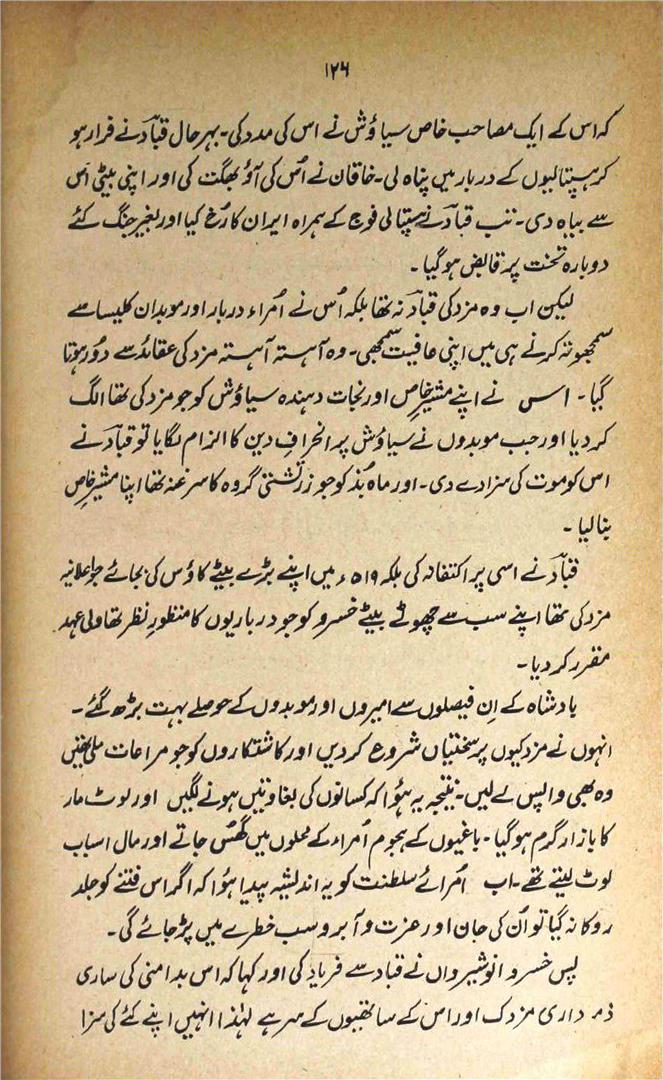 ۱۲۶
کہ اس کے ایک مصاحب خاص سیاؤش نے اس کی مدد کی۔ بہر حال قباد نے فرار ہو
کر ہپتالیوں کے دربار میں پناہ لی۔ خاقان نے اُس کی آؤ بھگت کی اور اپنی بیٹی اس
سے بیاہ دی۔ تب قباد نے ہپتالی فوج کے ہمراہ ایران کا رُخ کیا اور بغیر جنگ کئے
دوبارہ تخت پر قابض ہو گیا۔
لیکن اب وہ مزدکی قباد نہ تھا بلکہ اُس نے اُمراء دربار اور موبدان کلیسا سے
سمجھوتہ کرنے ہی میں اپنی عافیت سمجھی۔ وہ آہستہ آہستہ مزدکی عقائد سے دُور ہوتا
گیا۔ اس نے اپنے مشیرِ خاص اور نجات دہندہ سیاؤش کو جو مزدکی تھا الگ
کر دیا اور جب موبدوں نے سیاؤش پر انحرافِ دین کا الزام لگایا تو قباد نے
اس کو موت کی سزا دے دی۔ اور ماہ بُذ کو جو زرتشتی گروہ کا سرغنہ تھا اپنا مشیرِ خاص
بنا لیا۔
قباد نے اسی پر اکتفا نہ کی بلکہ ۵۱۹ء میں اپنے بڑے بیٹے کاؤس کی بجائے جو اعلانیہ
مزدکی تھا اپنے سب سے چھوٹے بیٹے خسرو کو جو درباریوں کا منظورِ نظر تھا ولی عہد
مقرر کر دیا۔
بادشاہ کے اِن فیصلوں سے امیروں اور موبدوں کے حوصلے بہت بڑھ گئے۔
انہوں نے مزدکیوں پر سختیاں شروع کر دیں اور کاشتکاروں کو جو مراعات ملی تھیں
وہ بھی واپس لے لیں۔ نتیجہ یہ ہُوا کہ کسانوں کی بغاوتیں ہونے لگیں اور لوٹ مار
کا بازار گرم ہو گیا۔ باغیوں کے ہجوم اُمراء کے محلوں میں گھُس جاتے اور مال اسباب
لوٹ لیتے تھے۔ اب اُمرائے سلطنت کو یہ اندیشہ پیدا ہُوا کہ اگر اس فتنے کو جلد
روکا نہ گیا تو اُن کی جان اور عزت و آبرو سب خطرے میں پڑ جائے گی۔
پس خسرو انوشیرواں نے قباد سے فریاد کی اور کہا کہ اس بدامنی کی ساری
ذمہ داری مزدک اور اس کے ساتھیوں کے سر ہے لہٰذا انہیں اپنے کئے کی سزا